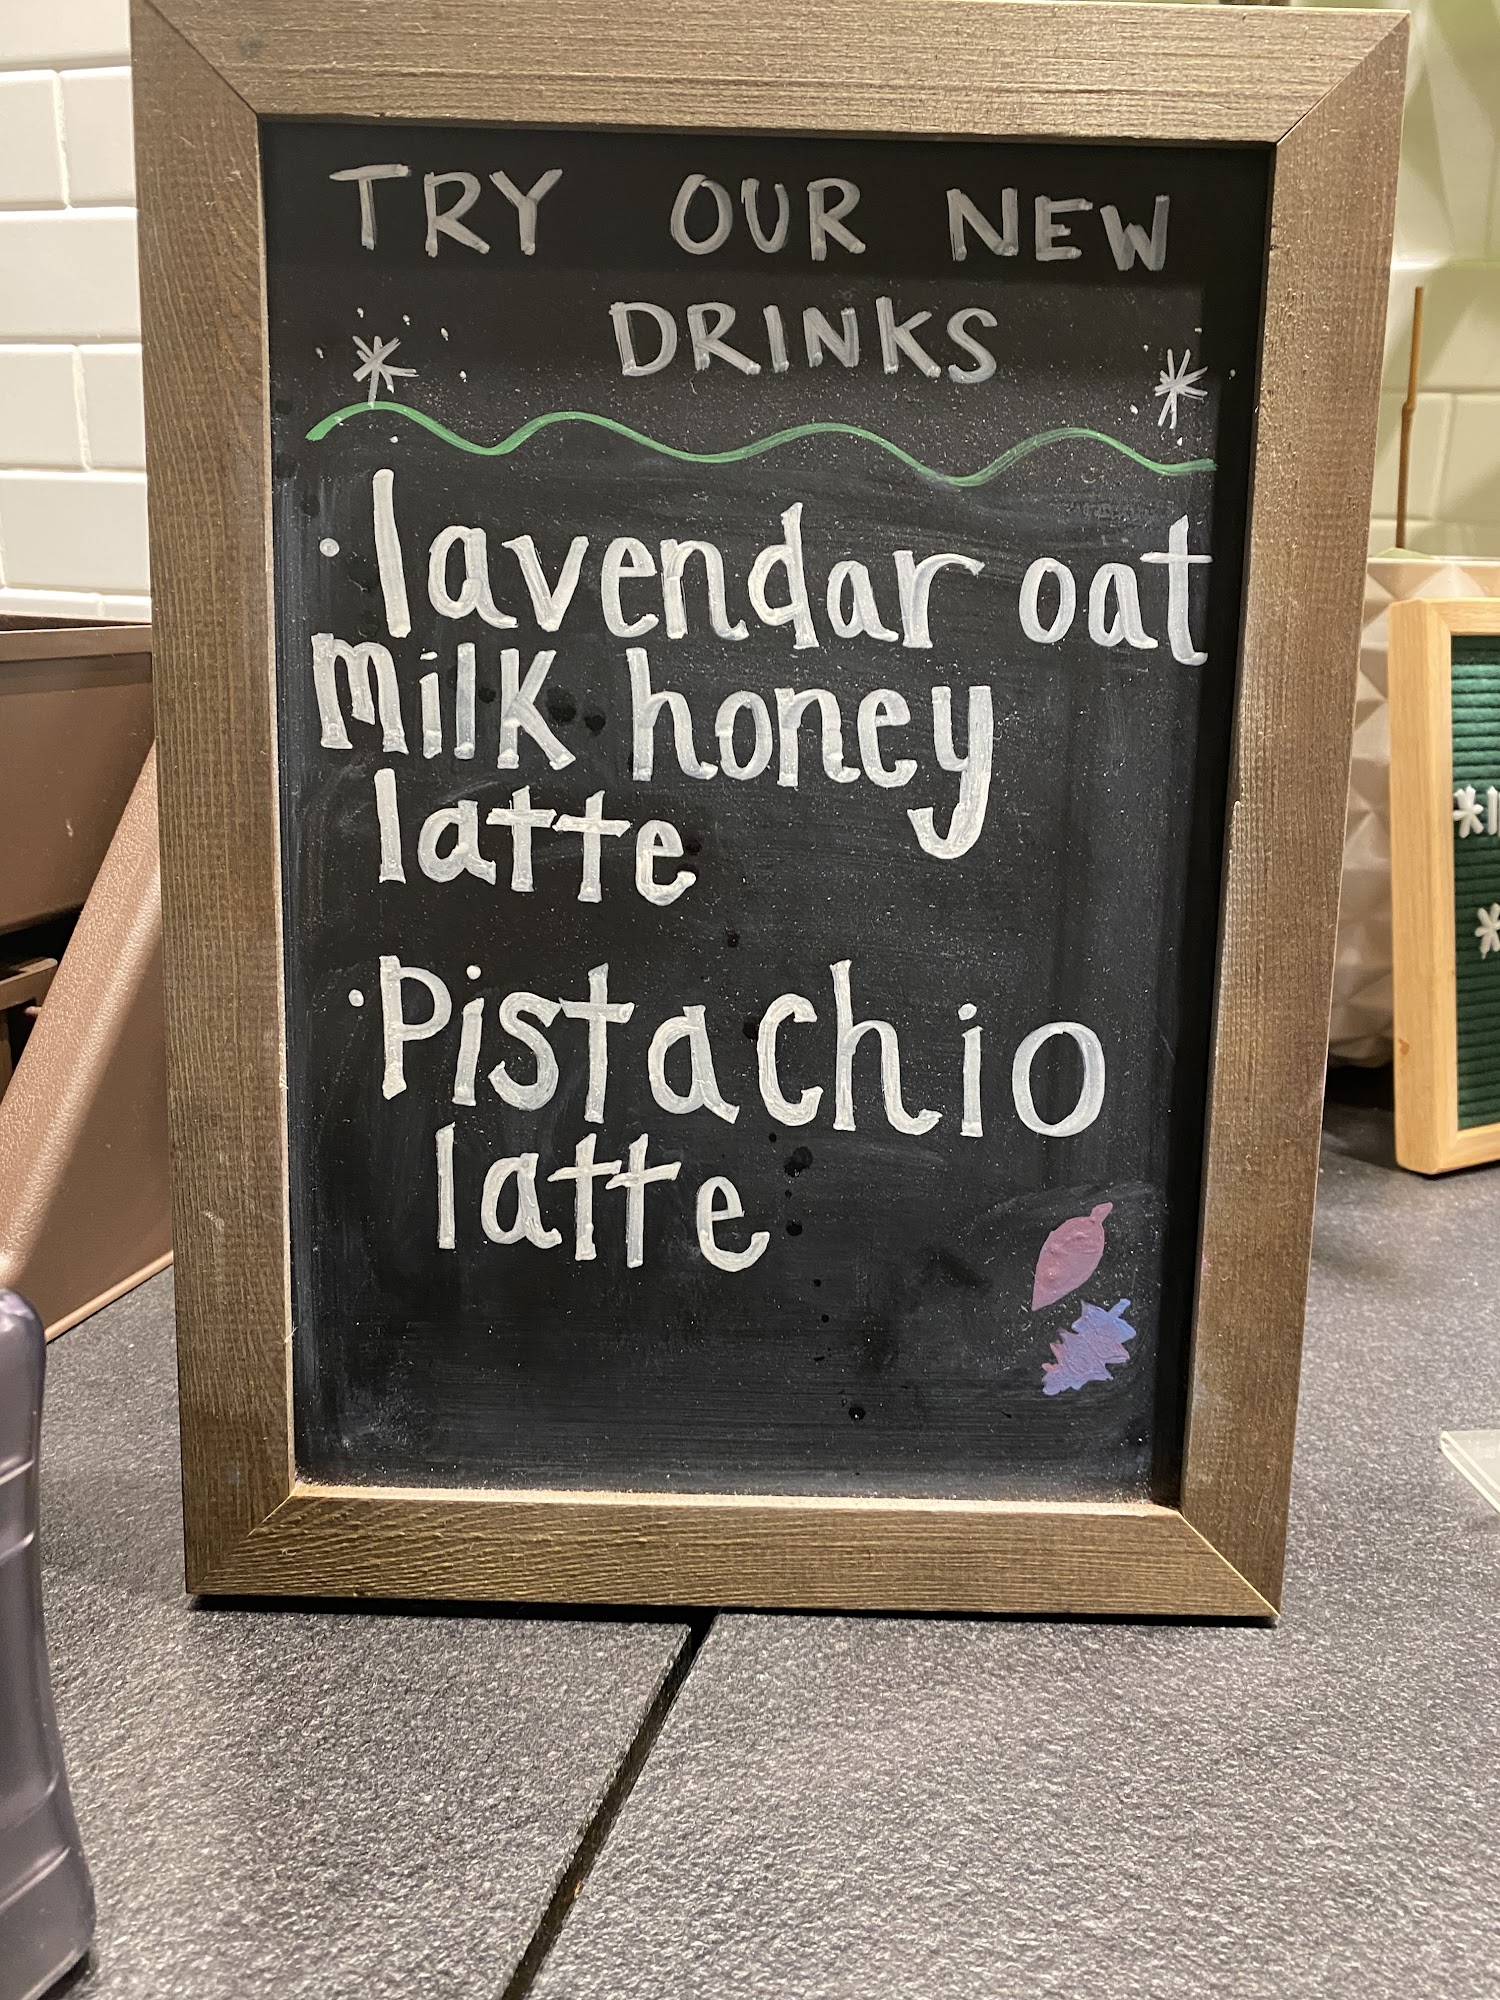 TRY OUR NEW
DRINKS
· lavendar oat
milk honey
latte
· Pistachio
latte